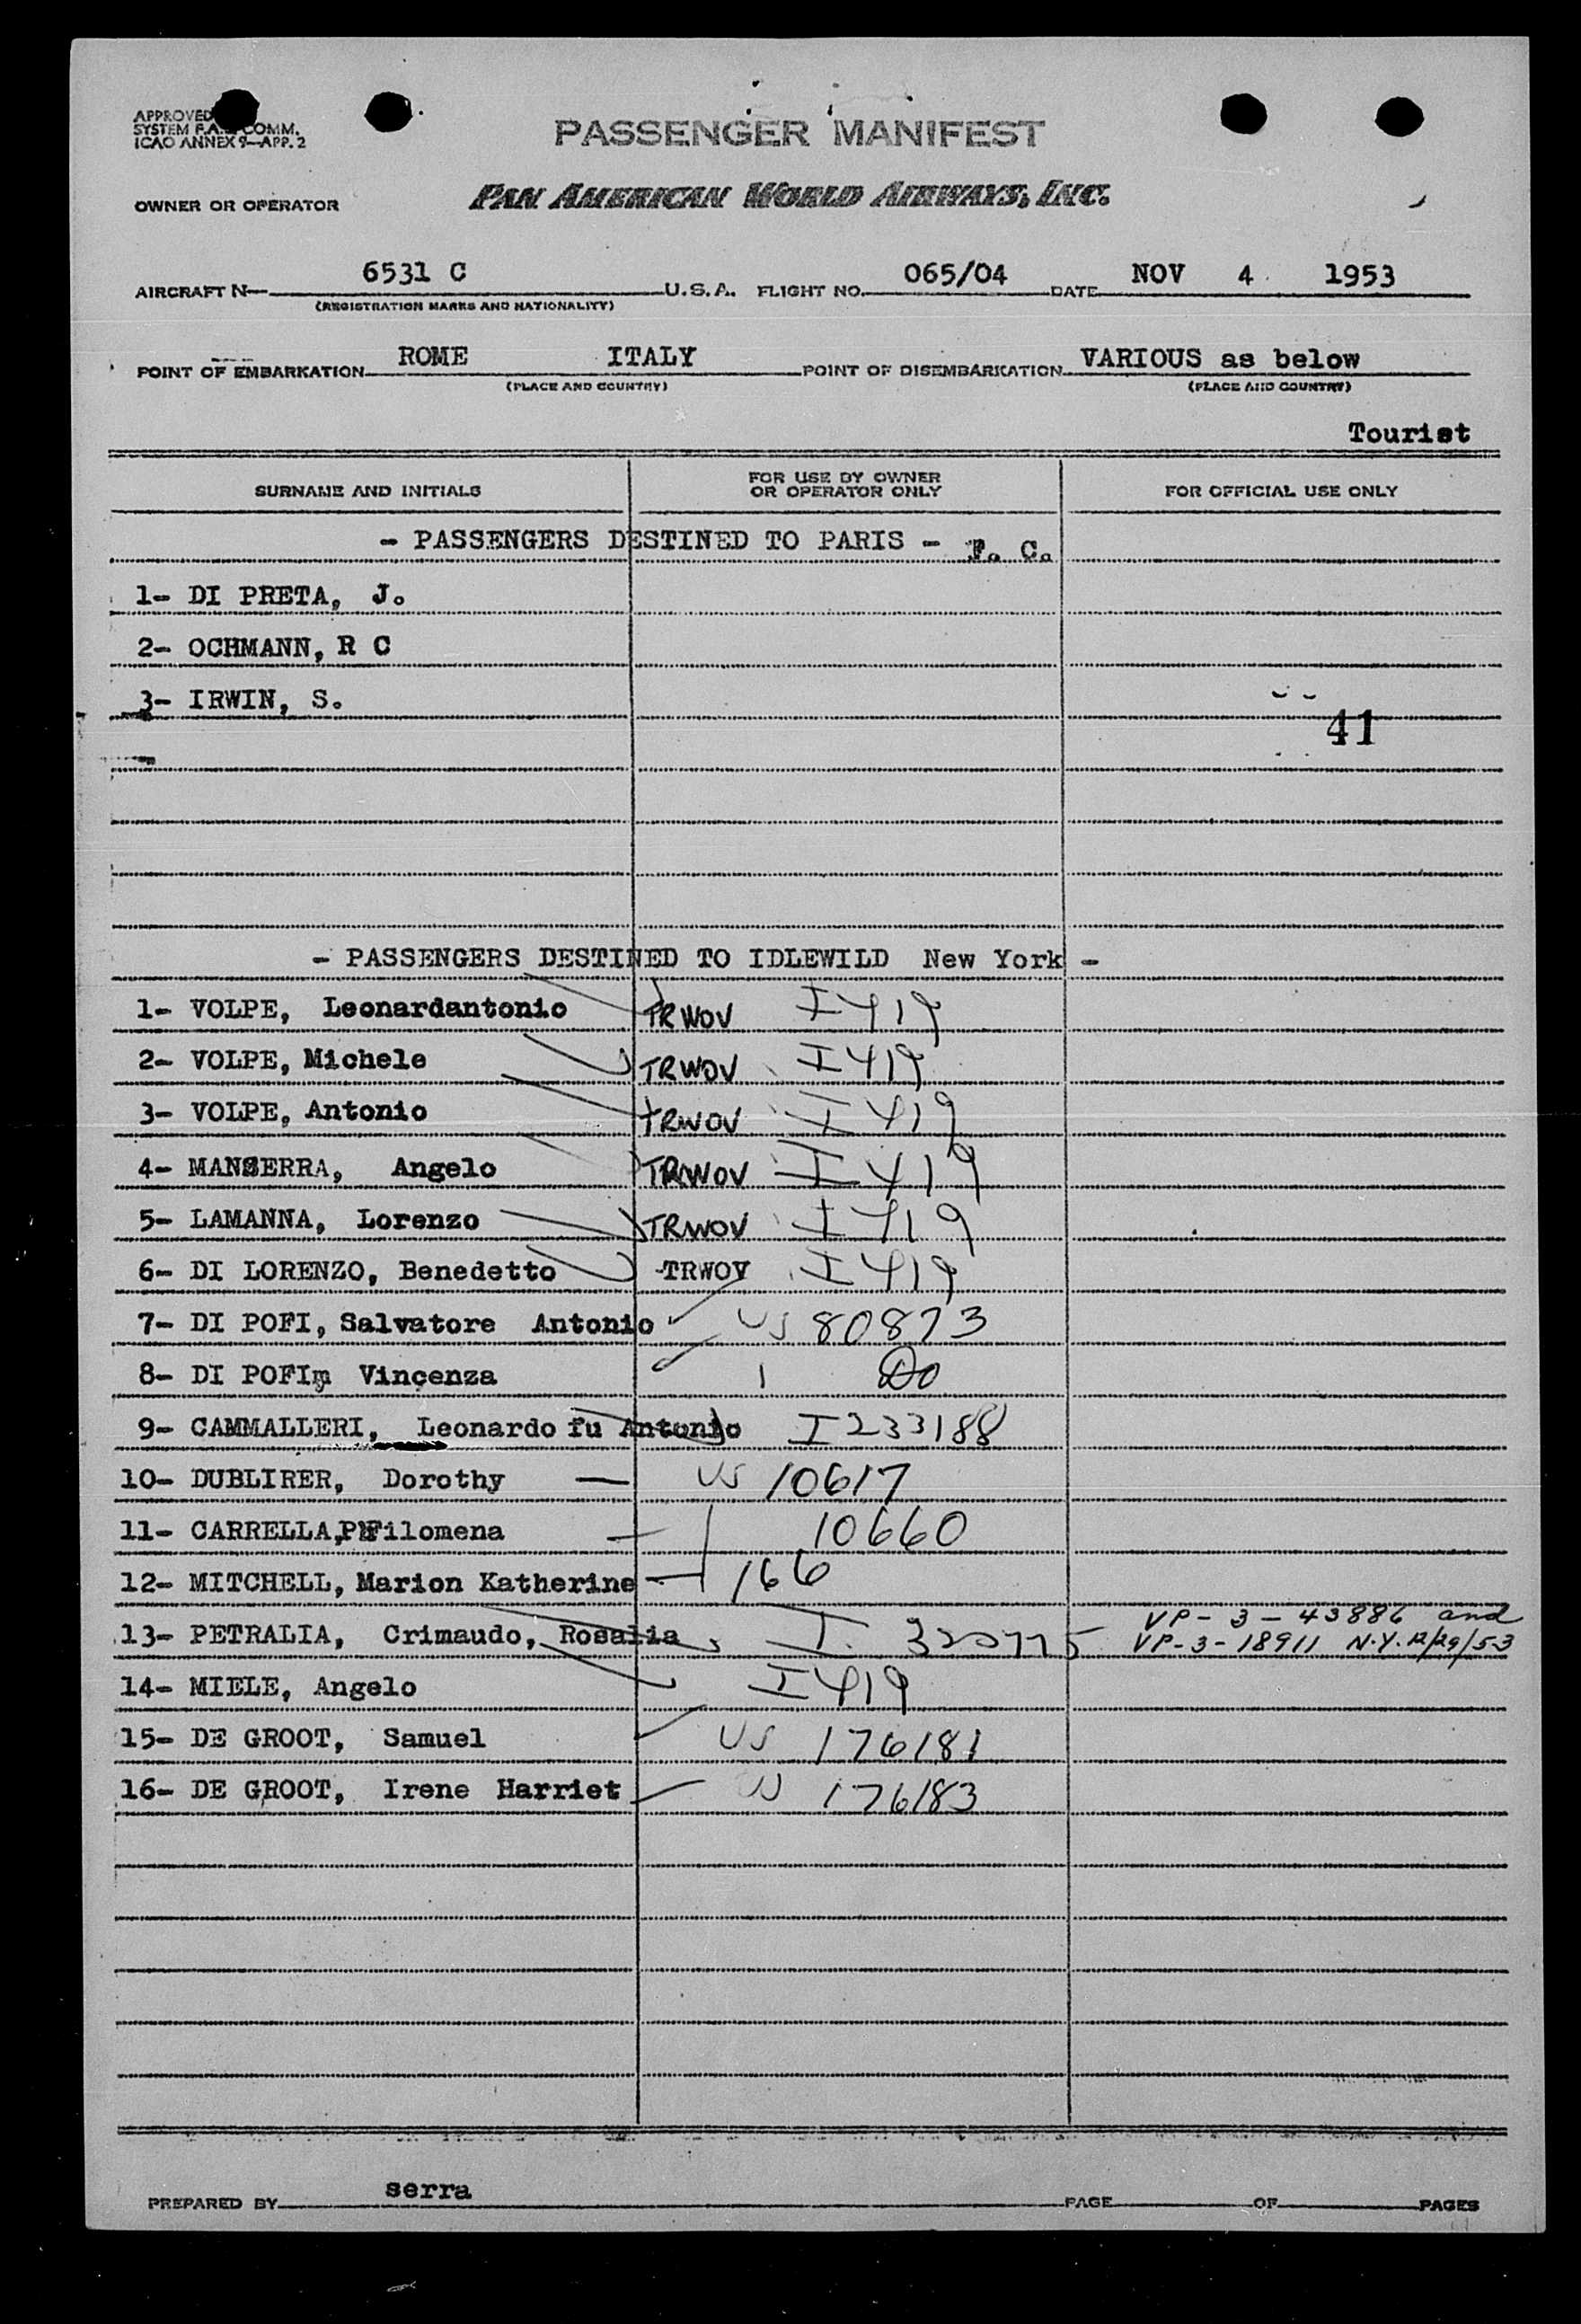 APPROVED
SYSTEM F.A. COMM.
ICAO ANNEX 9—APP. 2
PASSENGER MANIFEST
OWNER OR OPERATOR PAN AMERICAN WORLD AIRWAYS, INC.
AIRCRAFT N— 6531 C U.S.A. FLIGHT NO. 065/04 DATE NOV 4 1953
(REGISTRATION MARKS AND NATIONALITY)
POINT OF EMBARKATION ROME ITALY POINT OF DISEMBARKATION VARIOUS as below
(PLACE AND COUNTRY) (PLACE AND COUNTRY)
Tourist
SURNAME AND INITIALS FOR USE BY OWNER OR OPERATOR ONLY FOR OFFICIAL USE ONLY
- PASSENGERS DESTINED TO PARIS - F. C.
1- DI PRETA, J.
2- OCHMANN, R C
3- IRWIN, S.
41
- PASSENGERS DESTINED TO IDLEWILD New York -
1- VOLPE, Leonardantonio TRWOV I 419
2- VOLPE, Michele TRWOV I 419
3- VOLPE, Antonio TRWOV I 419
4- MANSERRA, Angelo TRWOV I 419
5- LAMANNA, Lorenzo TRWOV I 419
6- DI LORENZO, Benedetto -TRWOV I 419
7- DI POFI, Salvatore Antonio US 80873
8- DI POFIm Vincenza Do
9- CAMMALLERI, Leonardo fu Antonio I 233188
10- DUBLIRER, Dorothy US 10617
11- CARRELLA, Filomena 10660
12- MITCHELL, Marion Katherine 166
13- PETRALIA, Crimaudo, Rosalia I. 320775 VP-3-43886 and
VP-3-18911 N.Y. 12/29/53
14- MIELE, Angelo I 419
15- DE GROOT, Samuel US 176181
16- DE GROOT, Irene Harriet US 176183
PREPARED BY serra PAGE OF PAGES